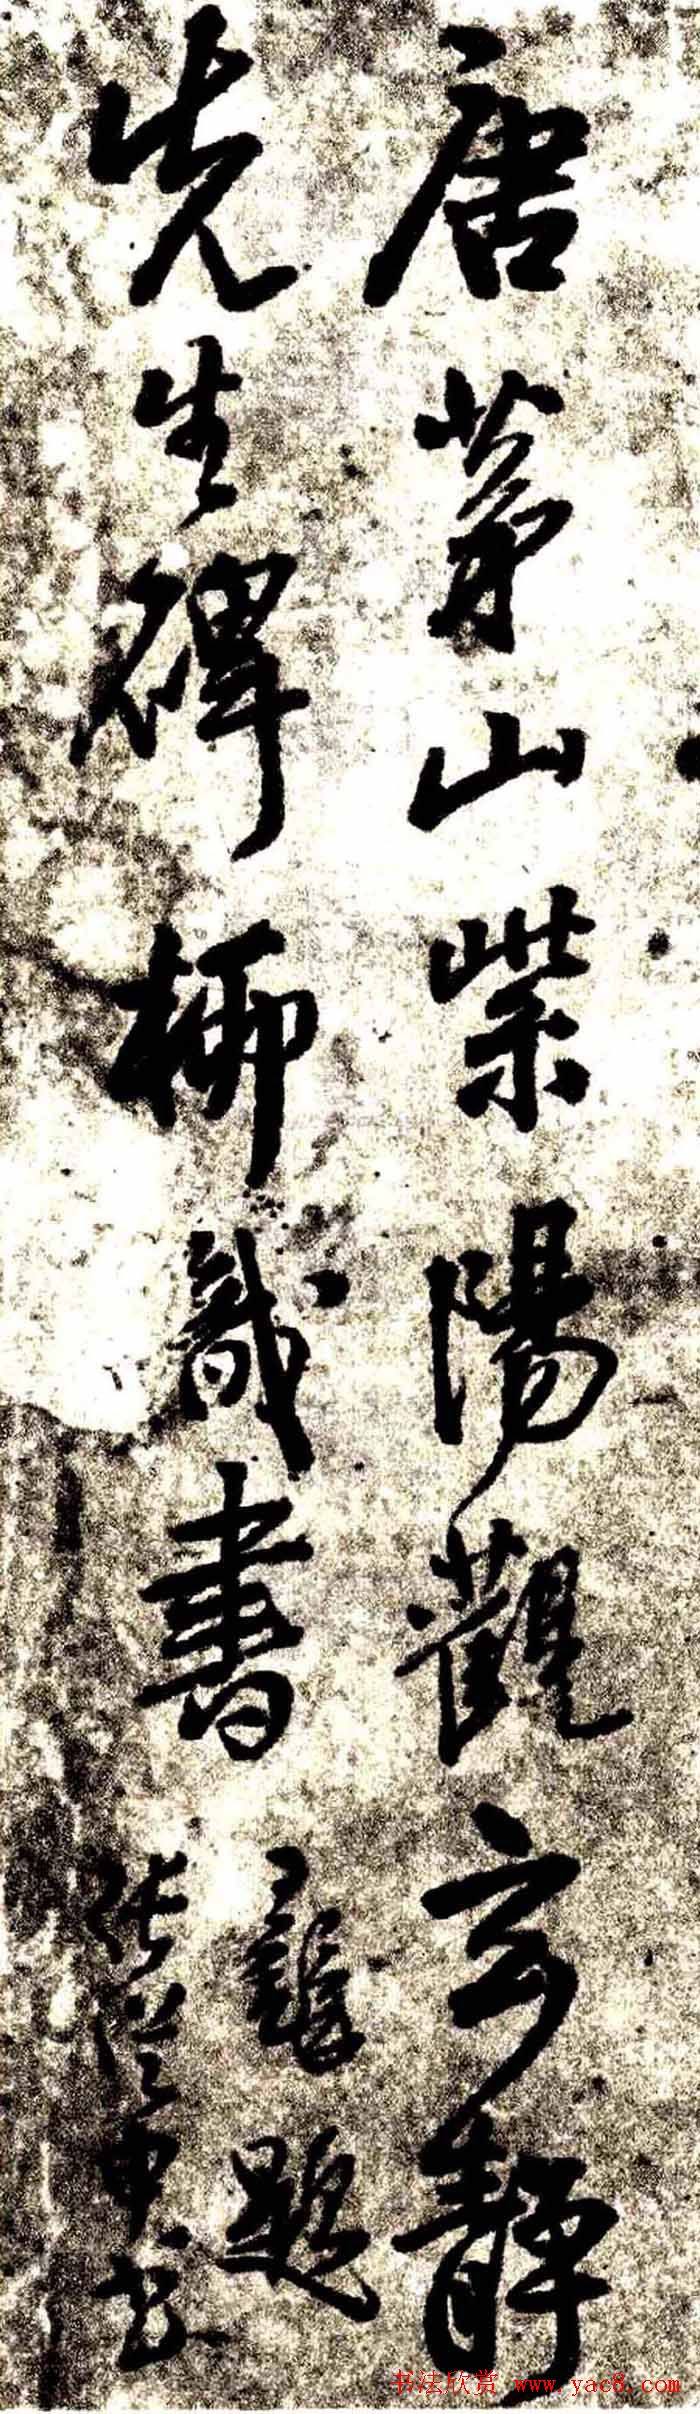 唐茅山紫陽觀玄靜
先生碑柳識書
龜題
張從申書
书法欣赏 www.yac8.com